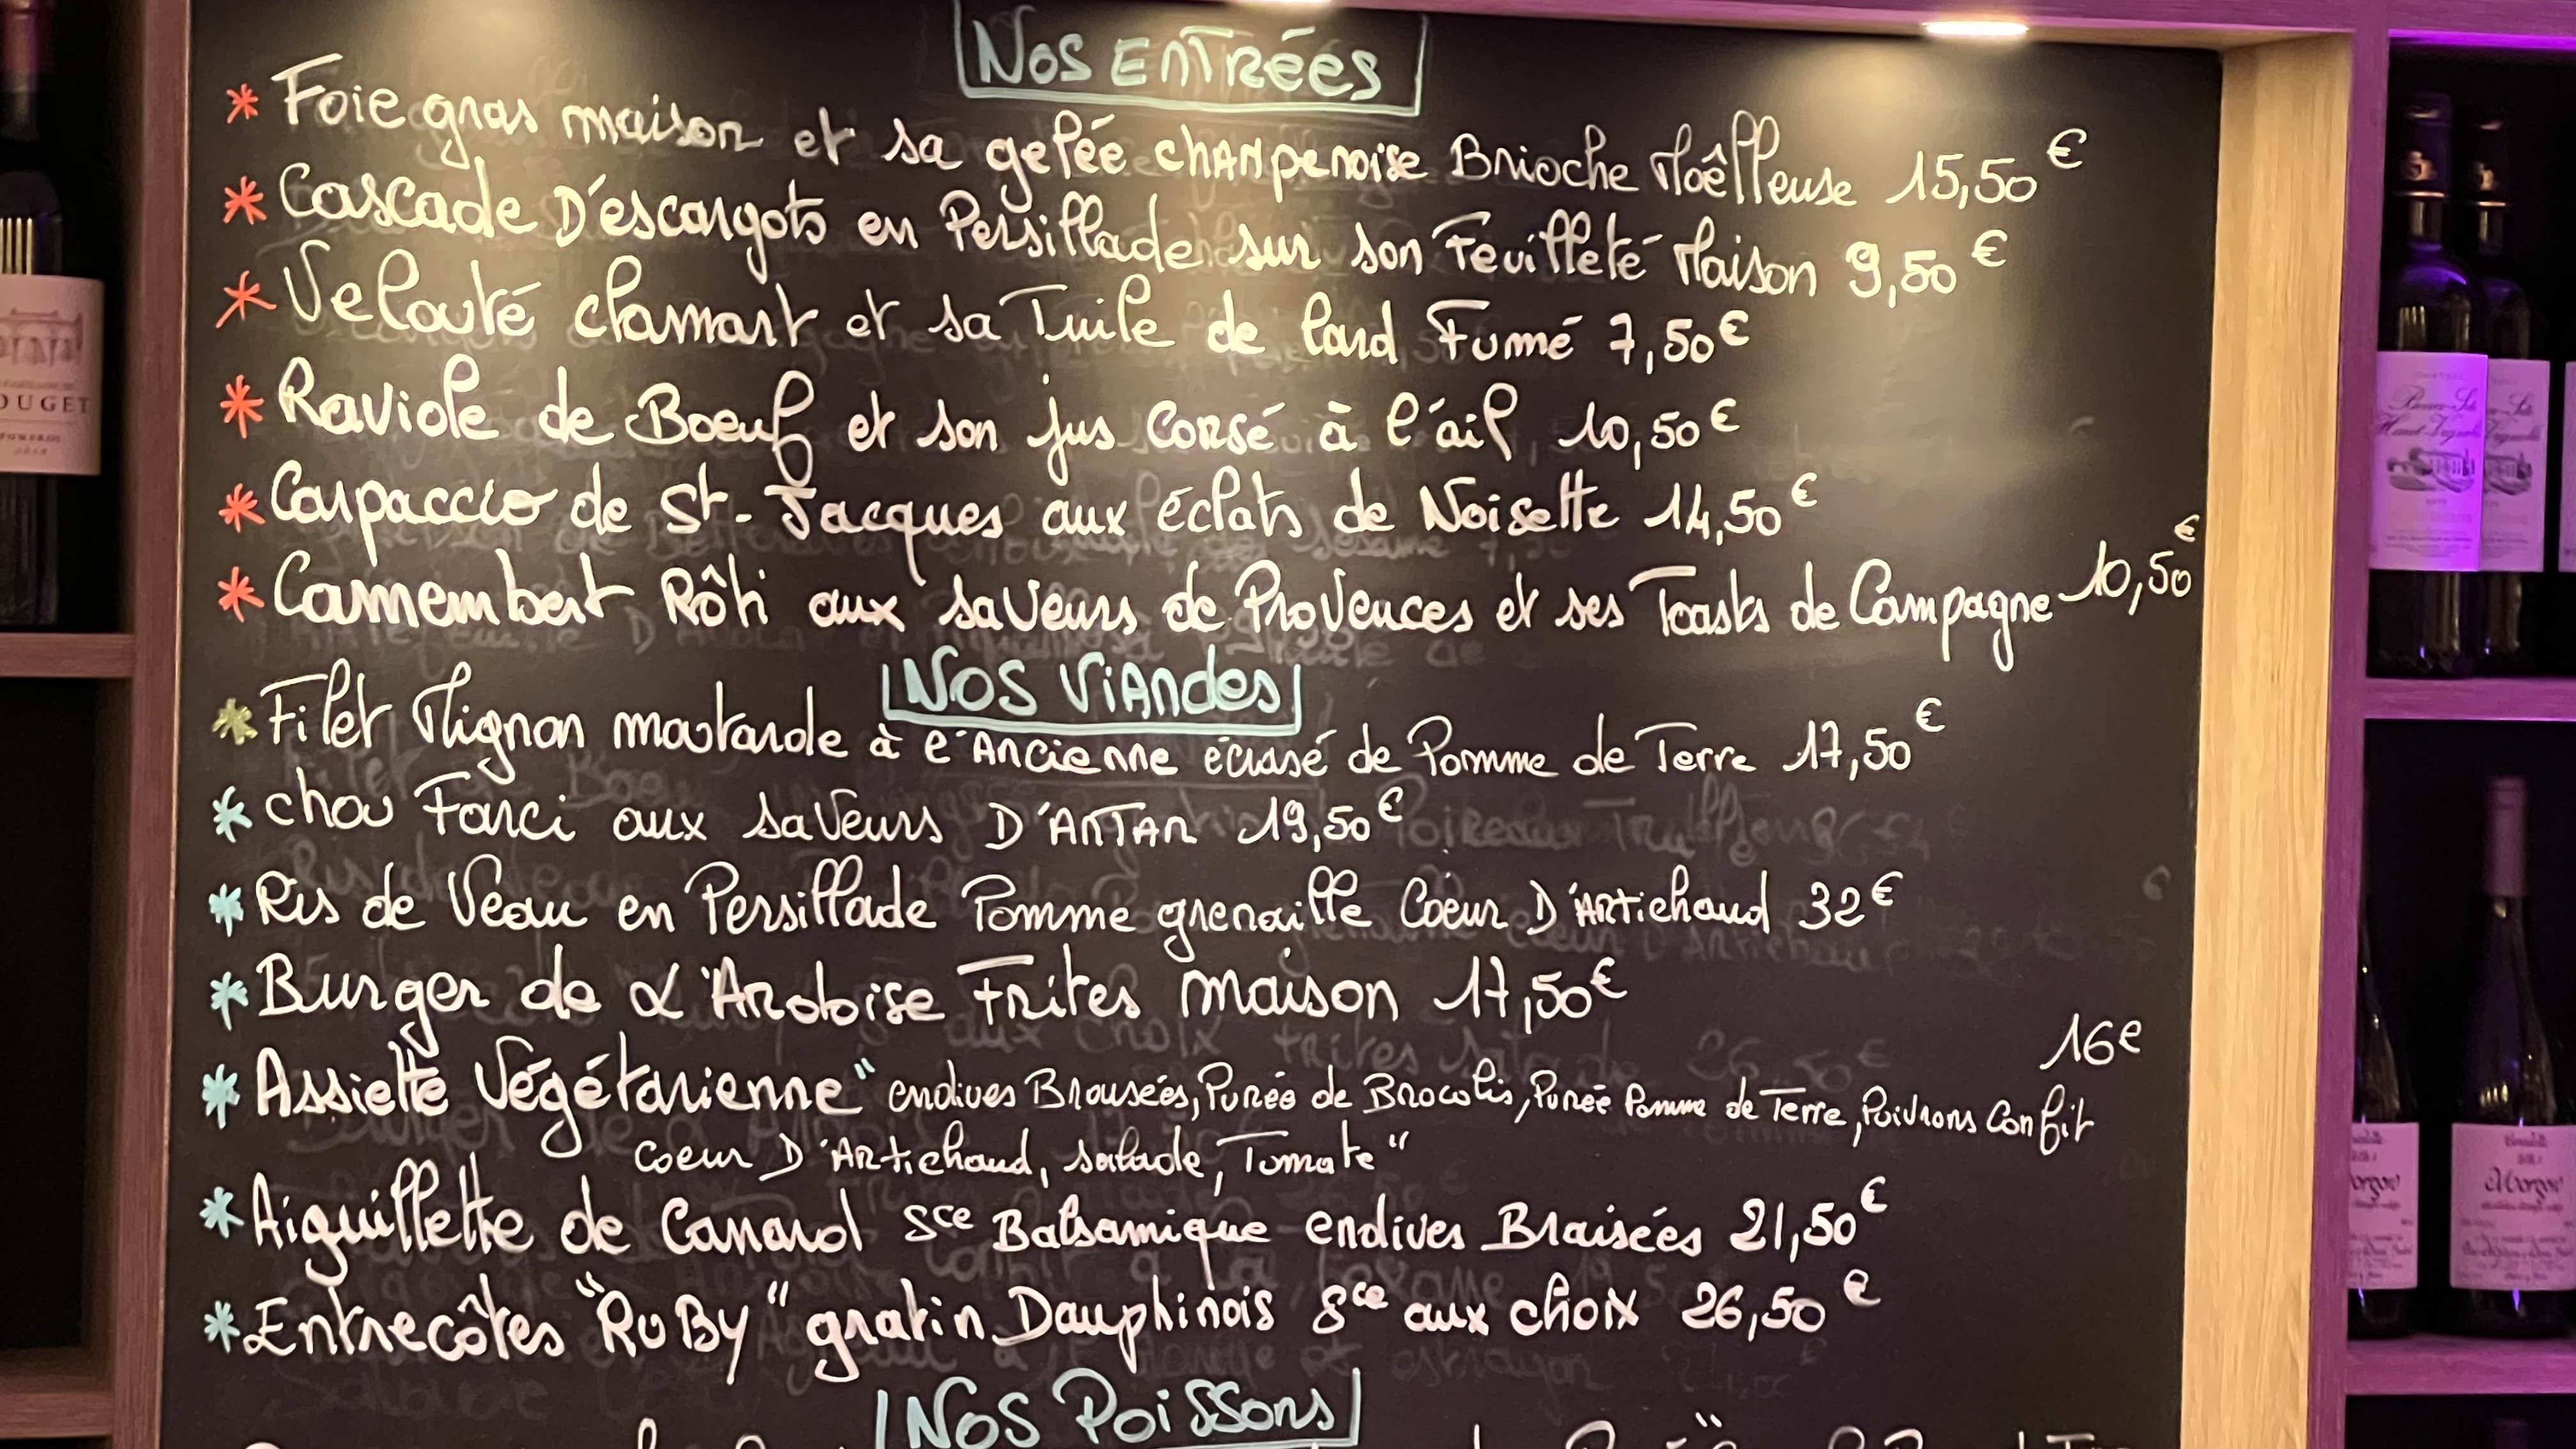 NOS ENTRÉES
* Foie gras maison et sa gelée champenoise Brioche Moêlleuse 15,50€
* Cascade D'escargots en Persillade sur son Feuilleté Maison 9,50€
* Velouté clamart et sa Tuile de lard Fumé 7,50€
* Raviole de Boeuf et son jus corsé à l'ail 10,50€
* Carpaccio de St-Jacques aux éclats de Noisette 14,50€
* Camembert Rôti aux saveurs de Provences et ses Toasts de Campagne 10,50€
NOS ViAndes
* Filet Mignon moutarde à l'Ancienne écrasé de Pomme de Terre 17,50€
* chou Farci aux saveurs D'ANTAN 19,50€
* Ris de Veau en Persillade Pomme grenaille Coeur D'Artichaud 32€
* Burger de L'Ardoise Frites maison 17,50€
16€
* Assiette Végétarienne "endives Brausées, Purée de Brocolis, Purée Pomme de Terre, Poivrons Confit
Coeur D'Artichaud, salade, Tomate"
* Aiguillette de Canard sce Balsamique endives Braisées 21,50€
* Entrecôtes "RuBy" gratin Dauphinois sce aux choix 26,50€
NOS PoiSSons
OUGET
POMEROL
Morgon